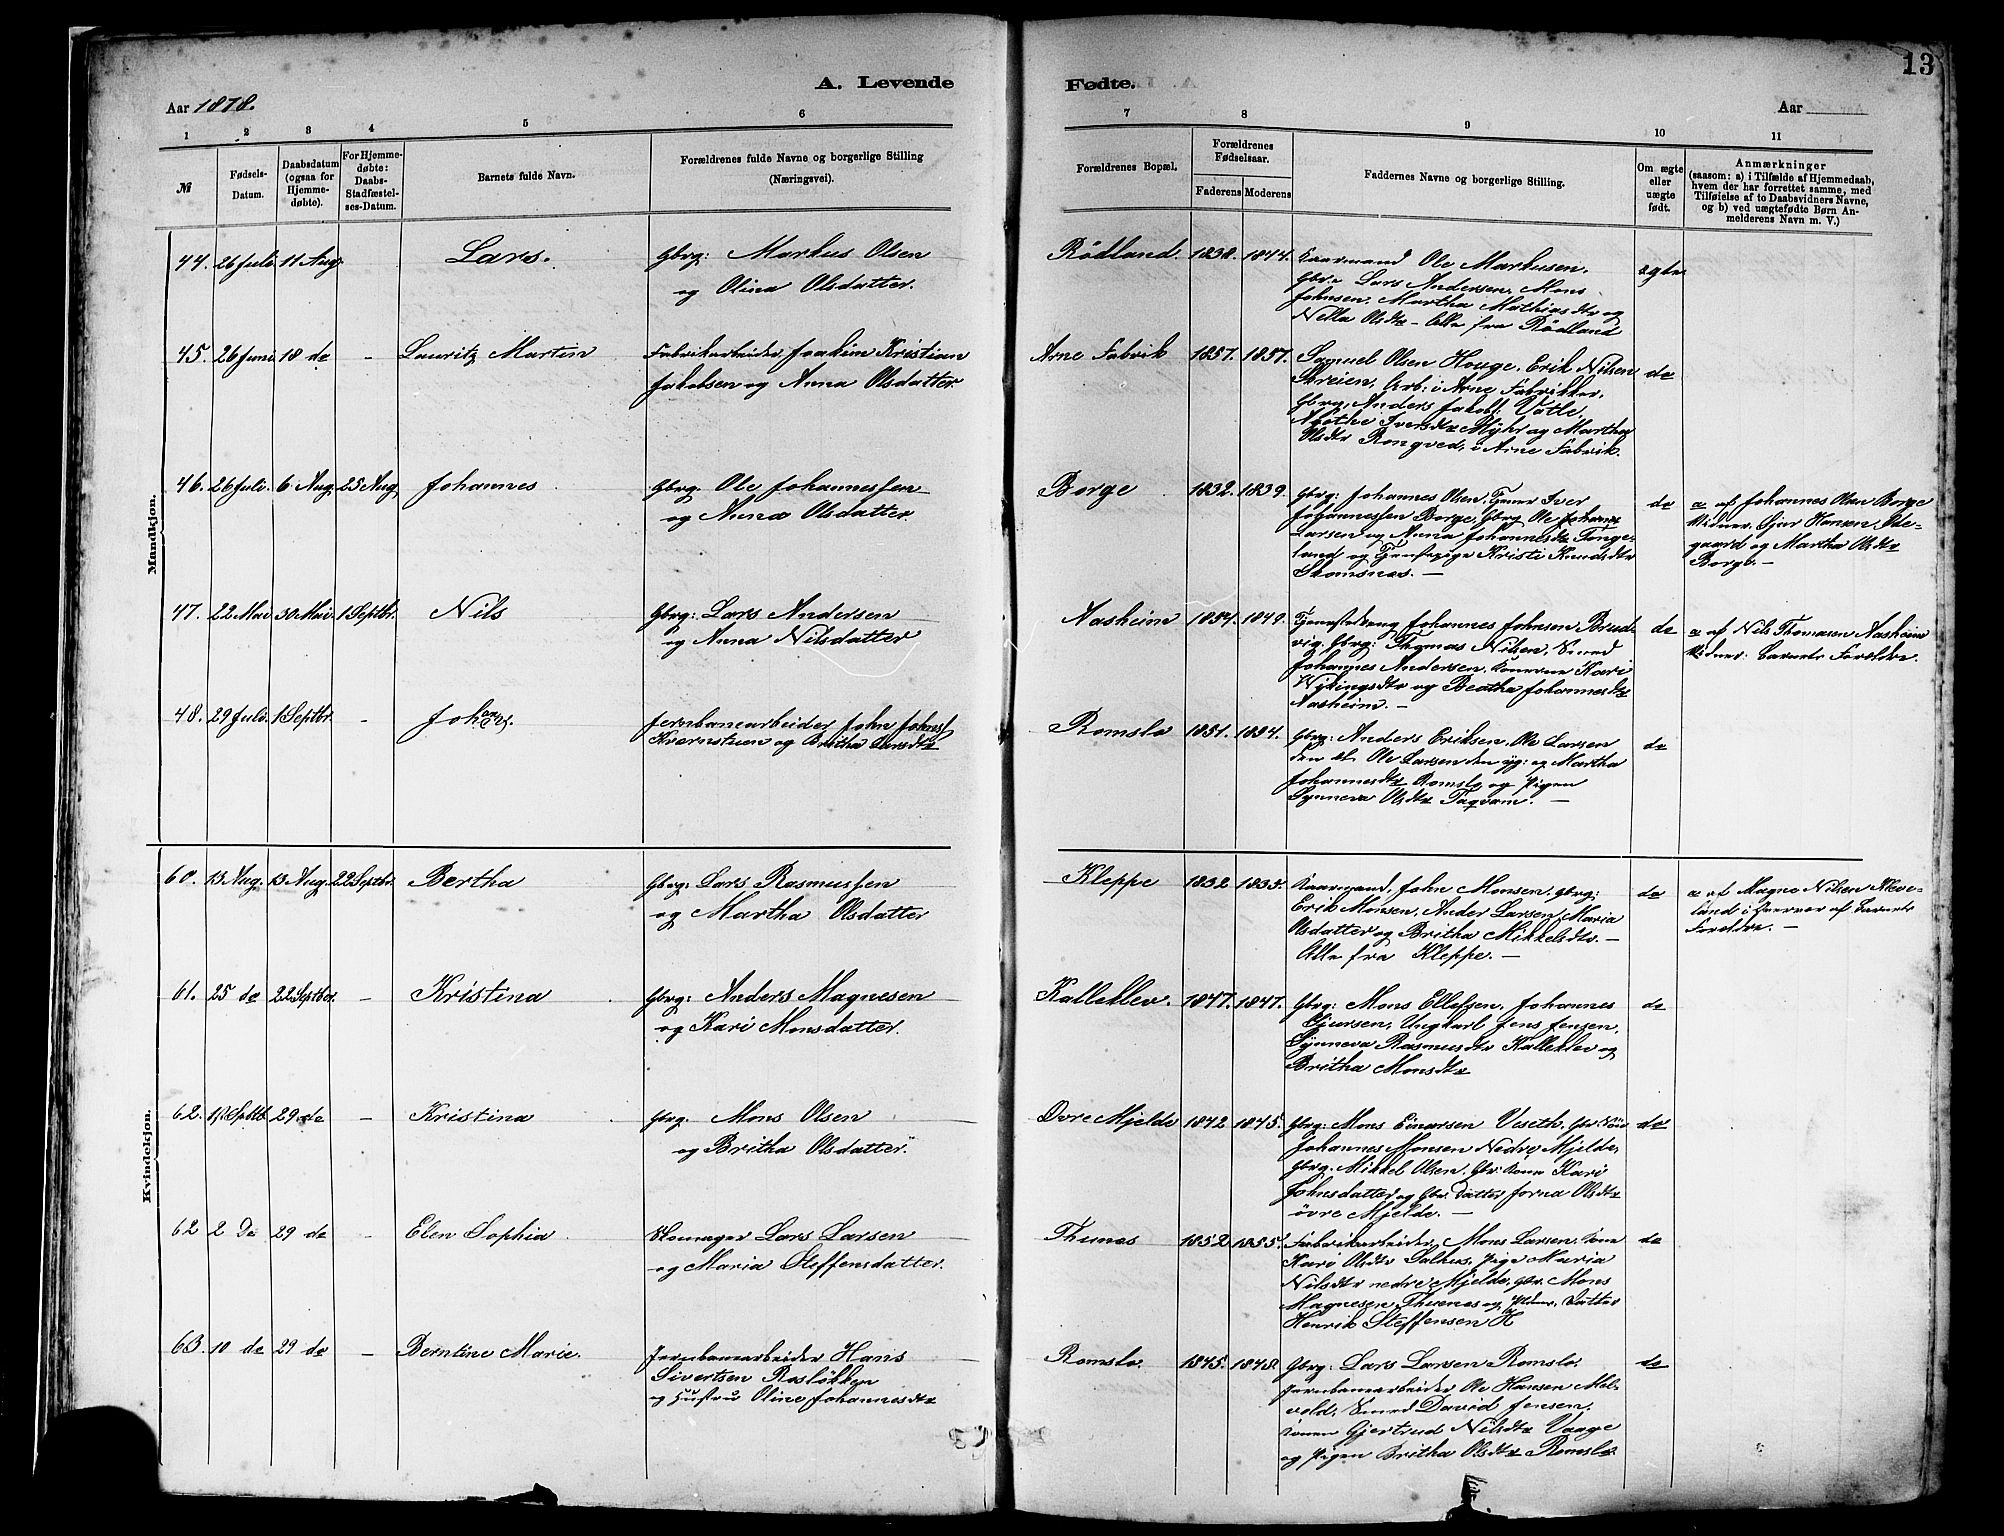 13
A. Levende
Fødte.
Aar 1878.
Aar
1 2 3 4 5 6
7 8 9 10 11
№
Fødsels-
Datum.
Daabsdatum
(ogsaa for
Hjemme-
døbte).
For Hjemme-
døbte:
Daabs-
Stadfæstel-
ses-Datum.
Barnets fulde Navn.
Forældrenes fulde Navne og borgerlige Stilling
(Næringsvei).
Forældrenes Bopæl.
Forældrenes
Fødselsaar.
Faderens Moderens
Faddernes Navne og borgerlige Stilling.
Om ægte
eller
uægte
født.
Anmærkninger
(saasom: a) i Tilfælde af Hjemmedaab,
hvem der har forrettet samme, med
Tilføielse af to Daabsvidners Navne,
og b) ved uægtefødte Børn An-
melderens Navn m. V.)
Mandkjøn.
44. 26 Juli 11 Aug. Lars. Gbrg: Markus Olsen
og Olina Olsdatter.
Rödland 1838. 1844. Kaarmand Ole Markusen,
Gbr. Lars Andersen, Mons
Johnsen, Martha Mathiasdtr og
Nilla Olsdtr – Alle fra Rödland
ægte
45. 26 Juni 18 do - Lauritz Martin Fabrikarbeider Joakim Kristian
Jakobsen og Anna Olsdatter.
Arne Fabrik 1857. 1857. Samuel Olsen Houge, Erik Nilsen
Skreien, Arb: i Arne Fabrikker,
Gbrg, Anders Jakobs. Vatle,
Iversdtr Myhr og Martha
Olsdtr Rongved, i Arne Fabrik.
do
46. 26 Juli. 6 Aug. 25 Aug Johannes Gbrg Ole Johannessen
og Anna Olsdatter.
Borge 1832. 1839. Gbrg: Johannes Olsen, Tjener Iver
Johannessen Borge, Gbrg Ole
Larsen og Anna Johannesdtr Tonge-
land og Tjenestepige Kristi Knudsdtr
Skomsnæs. —
do
a af Johannes Olsen Borge
Vidner, Gjur Hansen Øde-
gaard og Martha Olsdtr
Borge. —
47. 22 Mai 30 Mai. 1 Septbr. Nils Gbrg: Lars Andersen
og Anna Nilsdatter
Aasheim 1854. 1849. Tjenestedreng Johannes Johnsen Brud-
vig, Gbrg: Thomas Nilsen, Smed
Johannes Andersen, Konerne Kari
Vikingsdtr og Beatha Johannesdtr
Aasheim. —
do
a af Nils Thomasen Aasheim
Vidner: Barnets Forældre.
48. 29 Juli. 1 Septbr. - Johannes. Jernbanearbeider John Johns.
Kvernstuen og Britha Larsdtr
Romslo 1851. 1854. Gbrg: Anders Eriksen, Ole Larsen
den æl. Ole Larsen den yg: og Martha
Johannesdtr Romslo og Pigen
Synneva Olsdtr Takvam. —
do
Kvindekjøn.
60. 13 Aug. 13 Aug. 22 Septbr. Bertha Gbrg: Lars Rasmussen
og Martha Olsdatter
Kleppe 1832 1835. Kaarmand, John Monsen, Gbrg:
Erik Monsen, Ander Larsen, Maria
Olsdatter og Britha Mikkelsdtr. —
Alle fra Kleppe. —
do
a af Magne Nilsen Kleve-
land i Nærvær af Barnets
Foreldre. —
61. 25 do 22 Septbr. - Kristina Gbrg: Anders Magnesen
og Kari Monsdatter.
Kalleklev. 1847. 1847. Gbrg: Mons Ellefsen, Johannes
Gjursen, Ungkarl Jens Jensen,
Synneva Rasmusdtr Kalleklev og
Britha Monsdtr
do
62. Septb. 29 do - Kristina Gbrg. Mons Olsen
og Britha Olsdatter.
Øvre Mjelde 1842 1845. Gbrg: Mons Einarsen Veseth,
Johannes Monsen Nedre Mjelde,
Gbrg. Mikkel Olsen, Gbr Kone Kari
Johnsdatter og Gbr. Datter Olsdtr
övre Mjelde. —
do
62 2 Do 29 do - Elen Sophia Skomager Lars Larsen
og Maria Steffensdatter.
Thunes 1852 1855. Fabrikarbeider, Mons Larsen, Kone
Kari Olsdtr Salhus, Pige Maria
Nilsdtr nedre Mjelde, Gbr. Mons
Magnesen Thunes og Datter
Henrik Steffensen
do
63. 10 do 29 do - Berntine Marie. Jernbanearbeider Hans
Sivertsen Roslökken
og Hustru Oline Johannesdtr
Romslo. 1845. 1848. Gbrg: Lars Larsen Romslo.
Jernbanearbeider Ole Hansen Mel-
vold, Smed David Jensen,
Konen Gjertrud Nilsdtr Vaage
og Pigen Britha Olsdtr Romslo.
do